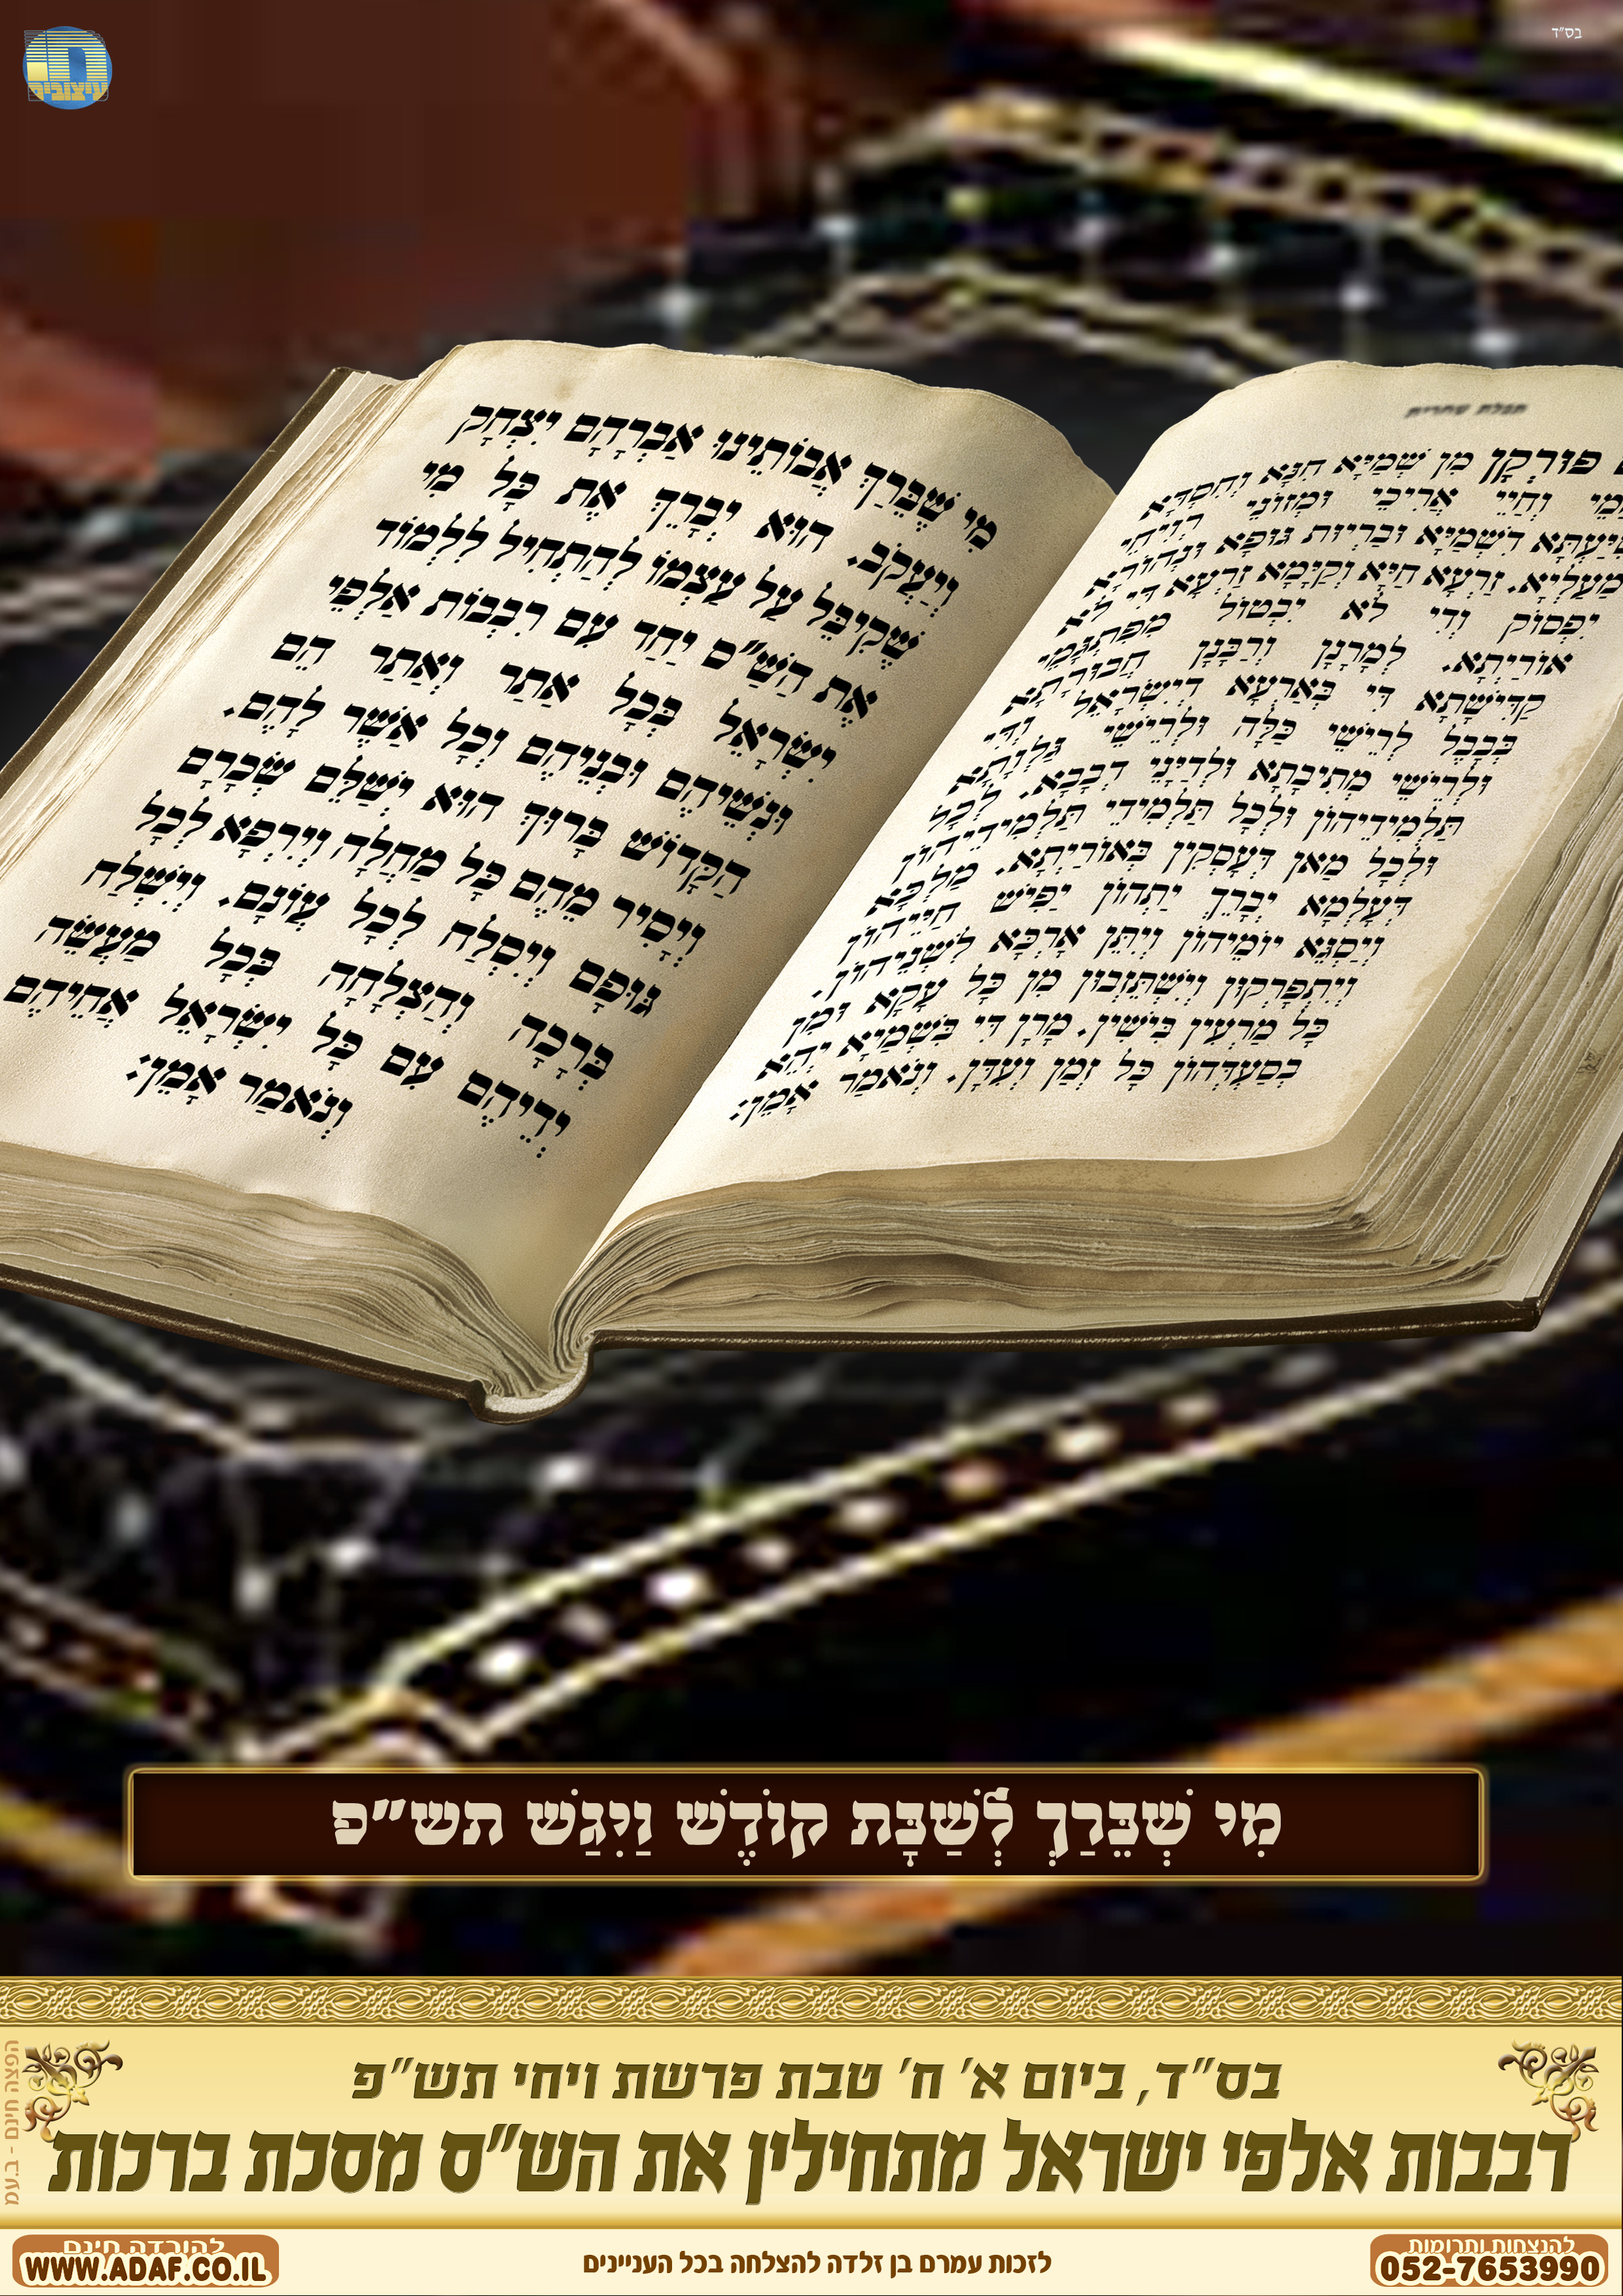 בס״ד
חי
עיצובים
תפלת שחרית
פּוּרְקָן מִן שְׁמַיָּא חִנָּא וְחִסְדָּא
וְחַיֵּי אֲרִיכֵי וּמְזוֹנֵי רְוִיחֵי
דִשְׁמַיָּא וּבַרְיוּת גּוּפָא וּנְהוֹרָא
מַעַלְיָא. זַרְעָא חַיָּא וְקַיָּמָא זַרְעָא דִּי לֹא
יִפְסוֹק וְדִי לֹא יִבְטוֹל מִפִּתְגָּמֵי
אוֹרַיְתָא. לְמָרָנָן וְרַבָּנָן חֲבוּרָתָא
קַדִּישָׁתָא דִּי בְּאַרְעָא דְיִשְׂרָאֵל וְדִי
בְּבָבֶל לְרֵישֵׁי כַּלָּה וּלְרֵישֵׁי גַּלְוָתָא
וּלְרֵישֵׁי מְתִיבָתָא וּלְדַיָּנֵי דְבָבָא. לְכָל
תַּלְמִידֵיהוֹן וּלְכָל תַּלְמִידֵי תַלְמִידֵיהוֹן
וּלְכָל מַאן דְּעָסְקִין בְּאוֹרַיְתָא. מַלְכָּא
דְּעָלְמָא יְבָרֵךְ יַתְהוֹן יַפִּישׁ חַיֵּיהוֹן
וְיַסְגֵּא יוֹמֵיהוֹן וְיִתֵּן אָרְכָּא לִשְׁנֵיהוֹן.
וְיִתְפָּרְקוּן וְיִשְׁתֵּזְבוּן מִן כָּל עָקָא וּמִן
כָּל מַרְעִין בִּישִׁין. מָרָן דִּי בִּשְׁמַיָּא יְהֵא
בְסַעְדְּהוֹן כָּל זְמַן וְעִדָּן. וְנֹאמַר אָמֵן:
מִי שֶׁבֵּרַךְ אֲבוֹתֵינוּ אַבְרָהָם יִצְחָק
וְיַעֲקֹב. הוּא יְבָרֵךְ אֶת כָּל מִי
שֶׁקִיבֵּל עַל עַצְמוֹ לְהַתְחִיל לִלְמוֹד
אֶת הַשַּׁ״ס יַחַד עִם רִבְבוֹת אַלְפֵי
יִשְׂרָאֵל בְּכָל אֲתַר וַאֲתַר הֵם
וּנְשֵׁיהֶם וּבְנֵיהֶם וְכָל אֲשֶׁר לָהֶם.
הַקָּדוֹשׁ בָּרוּךְ הוּא יְשַׁלֵּם שְׂכָרָם
וְיָסִיר מֵהֶם כָּל מַחֲלָה וְיִרְפָּא לְכָל
גּוּפָם וְיִסְלַח לְכָל עֲוֹנָם. וְיִשְׁלַח
בְּרָכָה וְהַצְלָחָה בְּכָל מַעֲשֵׂה
יְדֵיהֶם עִם כָּל יִשְׂרָאֵל אֲחֵיהֶם
וְנֹאמַר אָמֵן:
מִי שֶׁבֵּרַךְ לְשַׁבָּת קוֹדֶשׁ וַיִּגַּשׁ תש״פ
בס״ד, ביום א׳ ח׳ טבת פרשת ויחי תש״פ
רבבות אלפי ישראל מתחילין את הש״ס מסכת ברכות
הפצה חינם - ב.עמ
להנצחות ותרומות
052-7653990
לזכות עמרם בן זלדה להצלחה בכל העניינים
להורדה חינם
WWW.ADAF.CO.IL